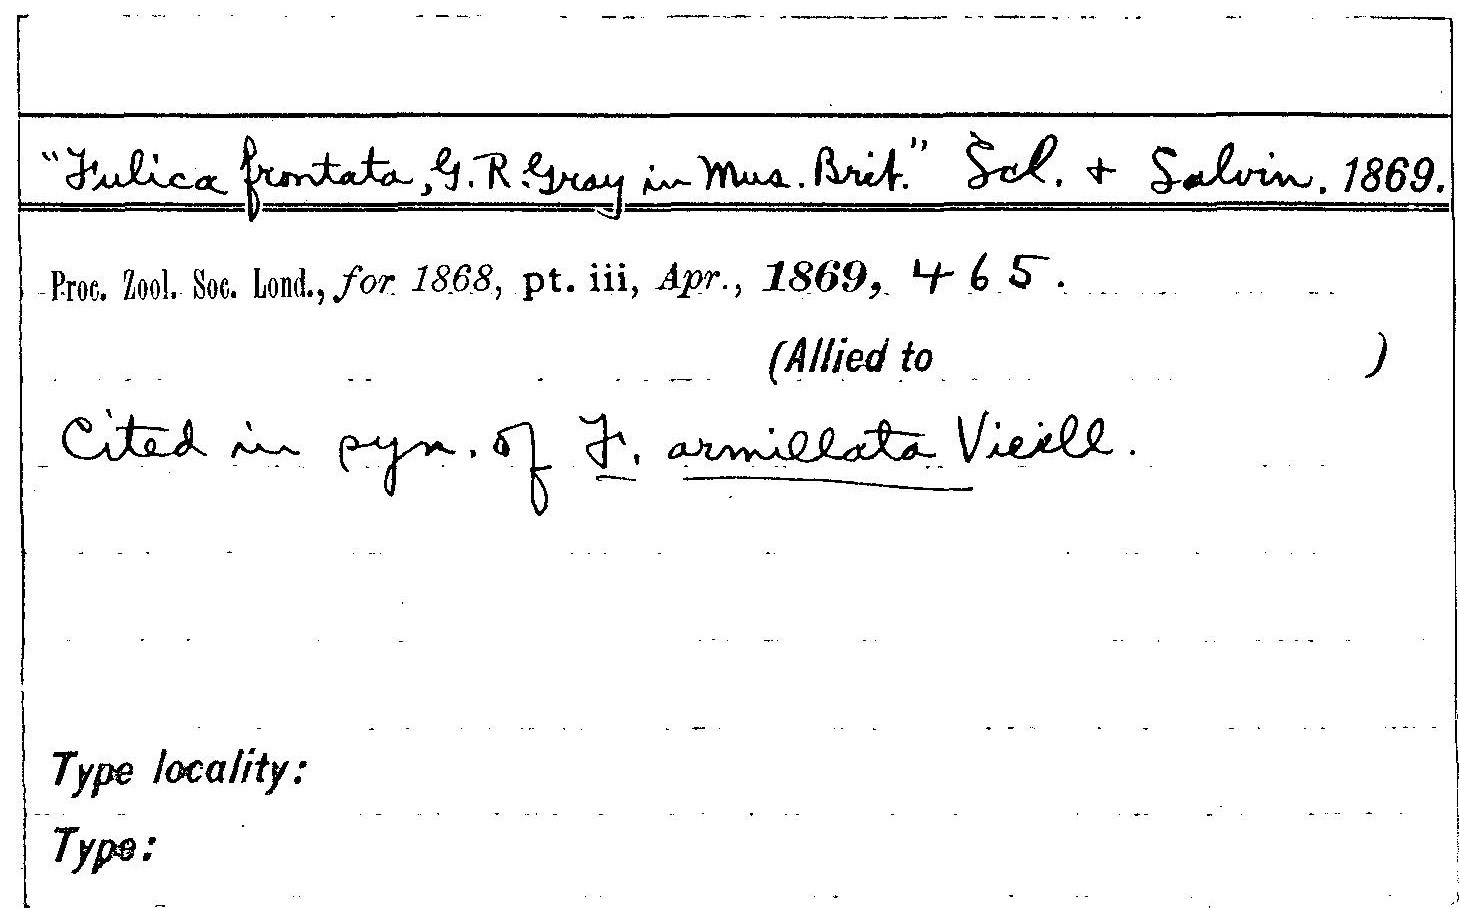 "Fulica frontata, G. R. Gray in Mus. Brit." Scl. + Salvin. 1869.
Proc. Zool. Soc. Lond., for 1868, pt. iii, Apr., 1869, 465.
(Allied to )
Cited in syn. of F. armillata Vieill.
Type locality:
Type: